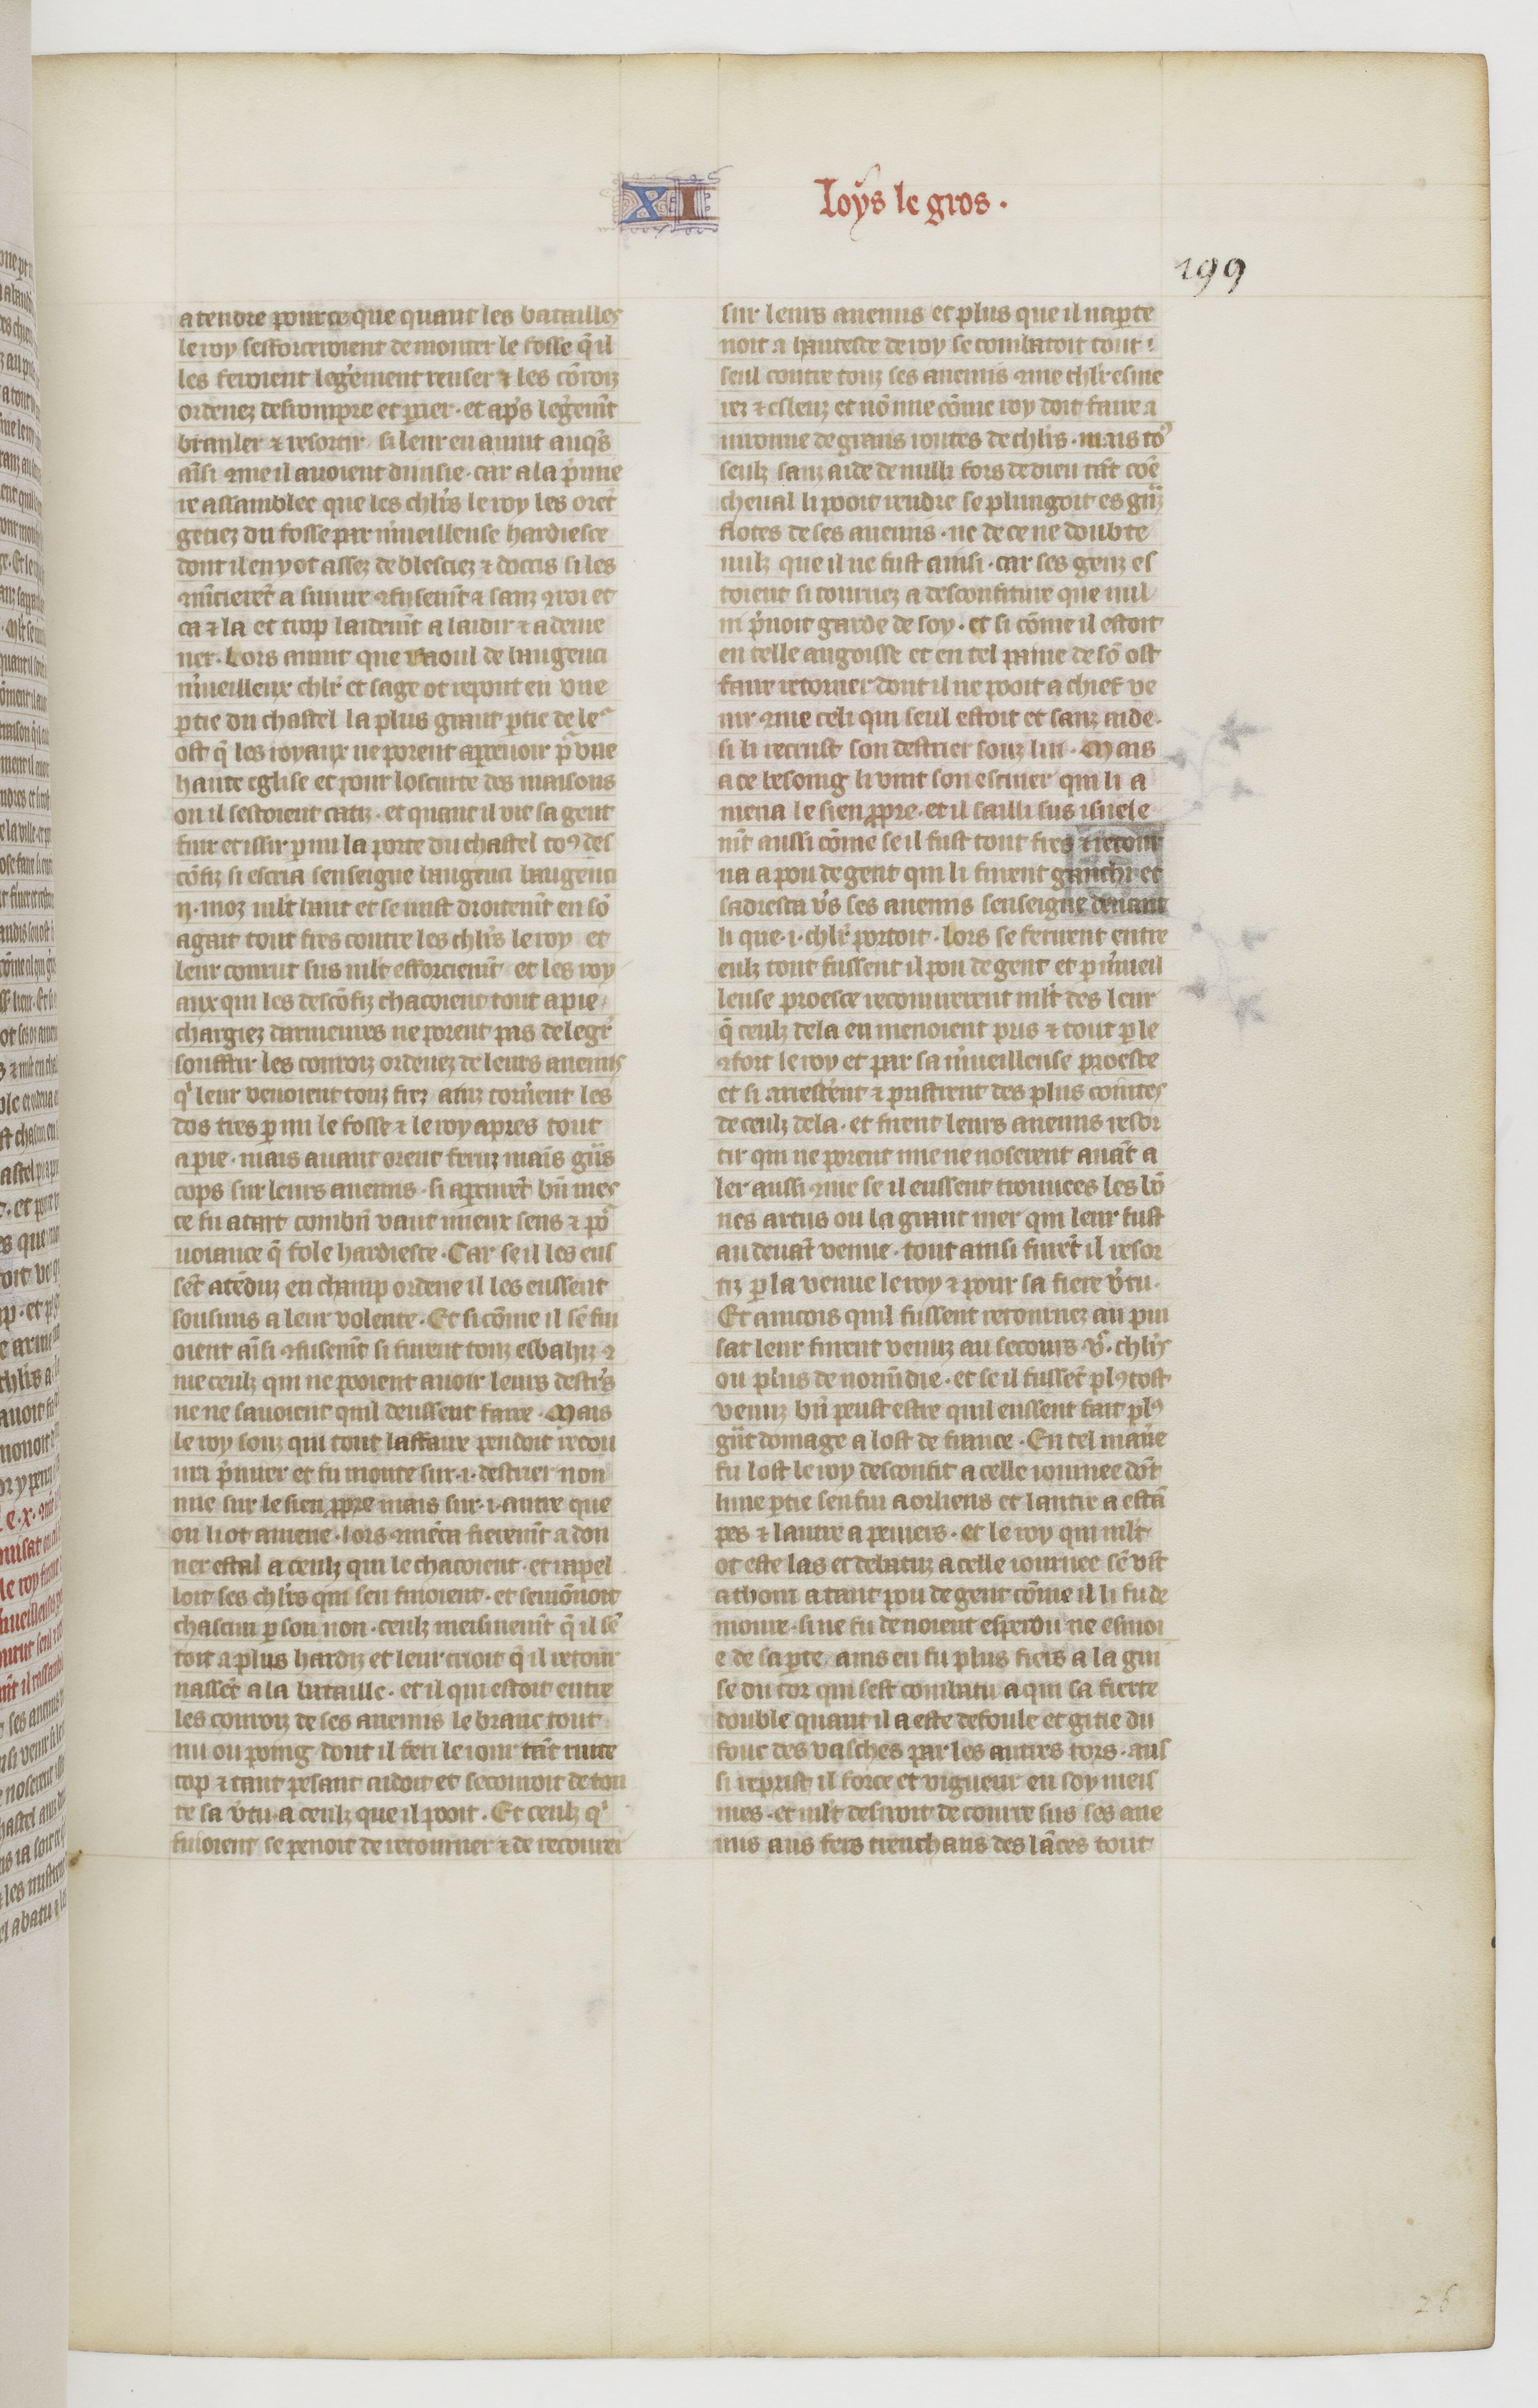 XI
Loys le gros.
199
atendre pource que quant les batailles
le roy sefforceroient de monter le fosse q̃ il
les feroient legẽment reuser ⁊ les cõroiz
ordenez desrompre et p̱cier · et ap̃s legẽmt̃
branler ⁊ resortir · si leur en auint auq̃s
aĩsi ꝯme il auoient diuisie · car a la p̃mie
re assamblee que les chlr̃s le roy les oret̃
getiez du fosse par m̃ueilleuse hardiesce
dont il en y ot assez de blesciez ⁊ doccis si les
ꝯmẽcieret̃ a siuiure ꝯfusemt̃ ⁊ sanz ꝯroi et
ca ⁊ la et trop laidemt̃ a laidir ⁊ a deme
ner · Lors auint que raoul de baugenci
m̃ueilleux chlr̃ et sage ot repont en vne
ꝑtie du chastel la plus grant ꝑtie de le᷑
ost q̃ les royaux ne porent aꝑcevoir pᷓ vne
haute eglise et pour loscurte des maisons
ou il sestoient catiz · et quant il vit sa gent
fuir et issir ꝑ mi la porte du chastel toꝰ des
cõfiz si escria senseigne baugenci baugenci
.ij. moz mlt̃ haut et se mist droitemt̃ en sõ
agait tout fres contre les chlr̃s le roy et
leur courut sus mlt̃ efforciemt̃ et les roy
aux qui les descõfiz chacoient tout a pie
chargiez darmeures ne porent pas de legr̃
souffrir les conroiz ordenez de leurs anemis
qͥ leur venoient touz frez ainz torñent les
dos tres ꝑ mi le fosse ⁊ le roy apres tout
a pie · mais auant orent feruz mains gñs
cops sur leurs anemis · si aꝑcuret̃ bñ mes
ce fu a tart combñ vaut mieux sens ⁊ po᷑
uoiance q̃ fole hardiesce · Car se il les eus
set̃ atẽduz en champ ordene il les eussent
sousmis a leur volente · Et si cõme il sẽ fui
oient aĩsi ꝯfusemt̃ si furent touz esbahiz ꝯ
me ceulz qui ne pooient auoir leurs destr̃s
ne ne sauoient quil deussent faire · Mais
le roy souz qui tout laffaire pendoit retou
rna p̃mier et fu monte sur ·i· destrier non
mie sur le sien ꝓpre mais sur ·i· autre que
on li ot amene · lors ꝯmẽca fieremt̃ a don
ner estal a ceulz qui le chacoient · et rapel
loit ses chlr̃s qui sen fuioient · et semõnoit
chascun ꝑ son non · ceulz meismemt̃ q̃ il sẽ
toit a plus hardiz et leur crioit q̃ il retour
nasset̃ a la bataille · et il qui estoit entre
les conroiz de ses anemis le branc tout
nu ou poing dont il feri le iour tãt ruite
cop ⁊ tant pesant aidoit et secouroit de tou
te sa ṽtu · a ceulz que il pooit · Et ceulz qͥ
fuioient se penoit de retourner ⁊ de recourre
sur leurs anemis et plus que il naꝑte
noit a hautesce de roy se combatoit tout
seul contre touz ses anemis ꝯme chlr̃ esme
rez ⁊ esleuz et nõ mie cõme roy doit faire a
uironne de grans routes de chlr̃s · mais toꝰ
seulz sanz aide de nulli fors de dieu tãt cõe
cheual li pooit rendre se plungoit es gñz
flotes de ses anemis · ne de ce ne doubte
nulz que il ne fust ainsi · car ses genz es
toient si tournez a desconfiture que nul
ni p̃noit garde de soy · et si cõme il estoit
en telle angoisse et en tel paine de sõ ost
faire retorner dont il ne pooit a chief ve
nir ꝯme celi qui seul estoit et sanz aide ·
si li recrust son destrier souz lui · Mais
a ce besoing li vint son escuier qui li a
mena le sien ꝓpre · et il sailli sus isnele
mt̃ aussi cõme se il fust tout fres ⁊ retour
na a pou de gent qui li firent guenchir et
sadresca ṽs ses anemis senseigne deuant
li que ·i· chlr̃ portoit · lors se ferirent entre
eulz tout fussent il pou de gent et ꝑ m̃ueil
leuse proesce recouurerent mlt̃ des leur
q̃ ceulz dela en menoient pris ⁊ tout ꝑ le
ꝯfort le roy et par sa m̃ueilleuse proesce
et si arestẽrt ⁊ pristrent des plus cointes
de ceulz dela · et firent leurs anemis resor
tir qui ne porent mie ne noserent auãt a
ler aussi ꝯme se il eussent trouuees les bõ
nes artus ou la grant mer qui leur fust
au deuãt venue · tout ainsi furet̃ il resor
tiz ꝑ la venue le roy ⁊ pour sa fiere ṽtu ·
Et aincois quil fussent retournez au pui
sat leur furent venuz au secours ·vͨ· chlr̃s
ou plus de normẽdie · et se il fusset̃ plꝰ tost
venuz bñ peust estre quil eussent fait plꝰ
gñt domage a lost de france · En tel maniẽ
fu lost le roy desconfit a celle iournee dõt
lune ꝑtie sen fui a orliens et lautre a estã
pes ⁊ lautre a peuiers · et le roy qui mlt̃
ot este las et debatuz a celle iournee sẽ vĩt
a thoui a tant pou de gent cõme il li fu de
moure · si ne fu de noient esperdu ne esmoi
e de sa ꝑte / ains en fu plus fiers a la gui
se du tor qui sest combatu a qui sa fierte
double quant il a este defoule et gitie du
fouc des vasches par les autres tors · aus
si reprist il force et vigueur en soy meis
mes · et mlt̃ desiroit de courre sus ses ane
mis aus fers trenchans des lãces tout
26